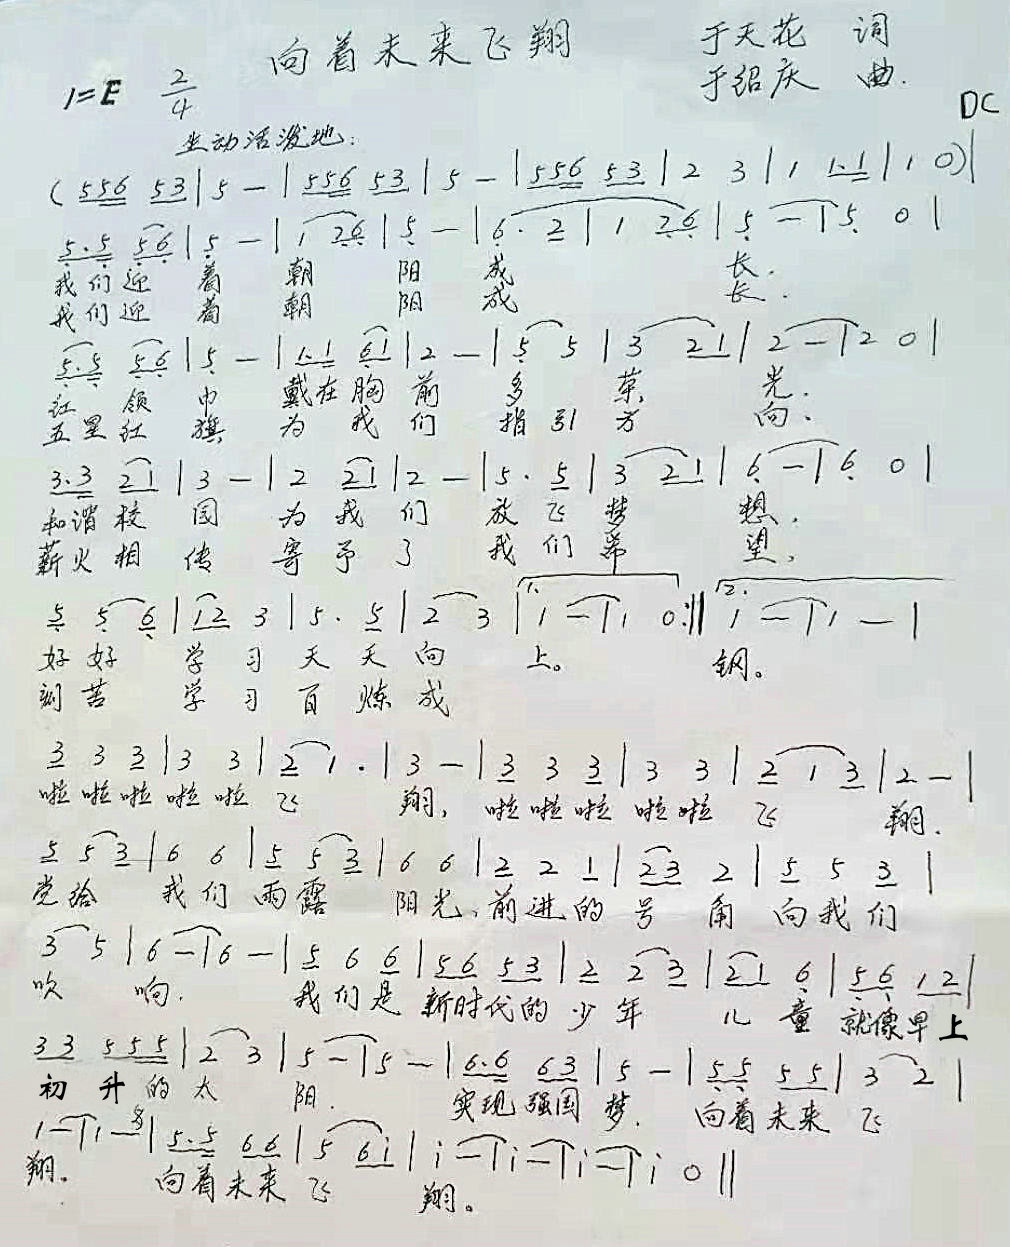 向着未来飞翔
于天花 词
1=E 2/4 于绍庆 曲.
DC
生动活泼地:
(556 53|5 -|556 53|5 -|556 53|2 3|1 1.1|1 0)|
5.5 56|5 -|1 26|5 -|6. 2|1 26|5 -|5 0|
我们迎 着 朝 阳 成 长.
我们迎 着 朝 阳 成 长.
5.5 56|5 -|1.1 61|2 -|5 5|3 21|2 -|2 0|
红 领 巾 戴在胸 前 多 荣 光.
五星红 旗 为 我 们 指 引 方 向.
3.3 21|3 -|2 21|2 -|5. 5|3 21|6 -|6 0|
和谐校 园 为 我 们 放 飞 梦 想,
薪火相 传 寄 予 了 我 们 希 望,
5 5 6|12 3|5. 5|2 3|1. 1 -|1 0:‖2. 1 -|1 -|
好 好 学 习 天 天 向 上。 钢。
刻 苦 学 习 百 炼 成
3 3 3|3 3|2 1.|3 -|3 3 3|3 3|2 1 3|2 -|
啦 啦 啦 啦 啦 飞 翔, 啦 啦 啦 啦 啦 飞 翔.
5 5 3|6 6|5 5 3|6 6|2 2 1|23 2|5 5 3|
党 给 我 们 雨 露 阳 光, 前 进 的 号 角 向 我 们
3 5|6 -|6 -|5 6 6|56 53|2 2 3|21 6|56 12|
吹 响. 我 们 是 新时代的 少 年 儿 童 就像早上
33 555|2 3|5 -|5 -|6.6 63|5 -|55 55|3 2|
初 升 的 太 阳. 实现强国 梦. 向着未来 飞
1 -|1 -|5.5 66|5 6i|i -|i -|i -|i 0‖
翔。 向着未来 飞 翔。